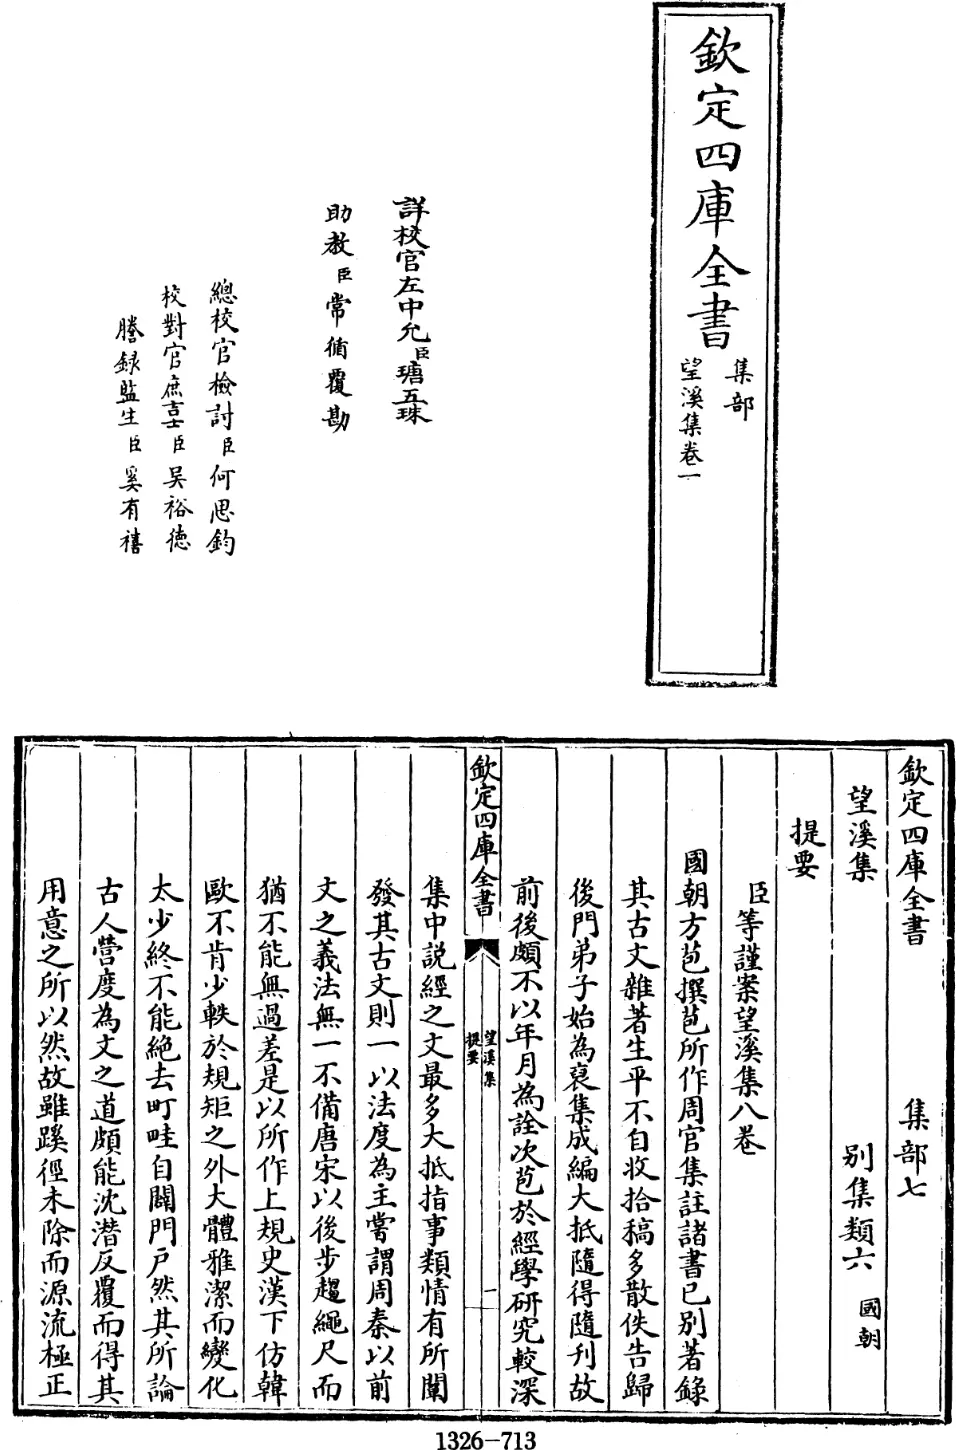 欽定四庫全書
集部
望溪集卷一
詳校官左中允臣瑭五珠
助教臣常循覆勘
總校官檢討臣何思鈞
校對官庶吉士臣吳裕德
謄録監生臣奚有禧
欽定四庫全書 集部七
望溪集 别集類六 國朝
提要
臣等謹案望溪集八卷
國朝方苞撰苞所作周官集註諸書已别著錄
其古文雜著生平不自收拾稿多散佚告歸
後門弟子始為裒集成編大抵隨得隨刋故
前後頗不以年月為詮次苞於經學研究較深
欽定四庫全書
望溪集
提要
一
集中説經之文最多大抵指事類情有所闡
發其古文則一以法度為主嘗謂周秦以前
文之義法無一不備唐宋以後步趨繩尺而
猶不能無過差是以所作上規史漢下仿韓
歐不肯少軼於規矩之外大體雅潔而變化
太少終不能絶去町畦自闢門戶然其所論
古人營度為文之道頗能沈潛反覆而得其
用意之所以然故雖蹊徑未除而源流極正
1326-713